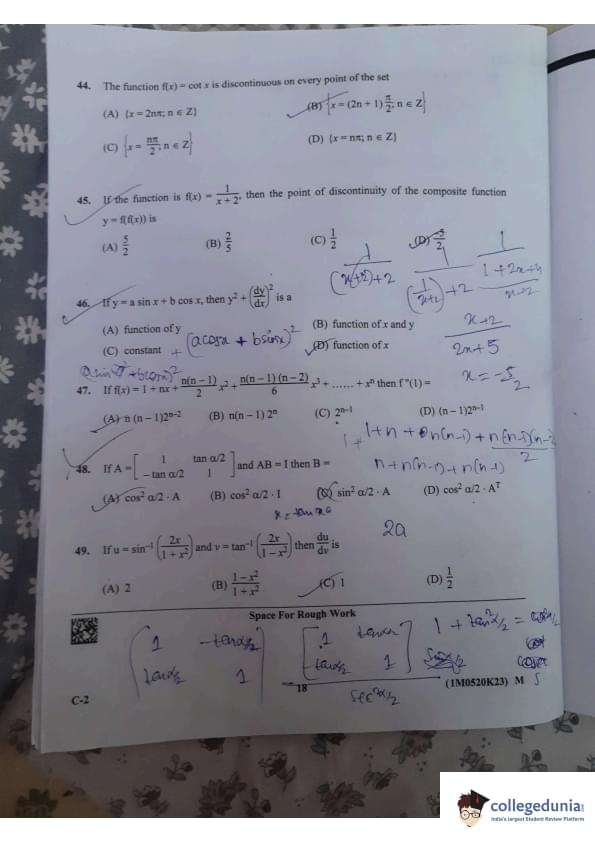 44. The function f(x) = cot x is discontinuous on every point of the set
(A) {x = 2nπ; n ∈ Z}
(B) {x = (2n + 1) π/2; n ∈ Z}
(C) {x = nπ/2; n ∈ Z}
(D) {x = nπ; n ∈ Z}
45. If the function is f(x) = 1/(x + 2), then the point of discontinuity of the composite function
y = f(f(x)) is
(A) 5/2 (B) 2/5 (C) 1/2 (D) -5/2
1/((x+2)+2) 1/((1/(x+2))+2) 1/((1+2x+4)/(x+2))
46. If y = a sin x + b cos x, then y² + (dy/dx)² is a
(A) function of y (B) function of x and y
(C) constant (D) function of x
+ (acosx + bsinx)²
(x+2)/(2x+5)
x = -5/2
47. If f(x) = 1 + nx + n(n − 1)/2 x² + n(n − 1)(n − 2)/6 x³ + ...... + xⁿ then f "(1) =
(A) n (n − 1)2ⁿ⁻² (B) n(n − 1) 2ⁿ (C) 2ⁿ⁻¹ (D) (n − 1)2ⁿ⁻¹
n + n(n-1) + n(n-1)
48. If A = [1 tan α/2; − tan α/2 1] and AB = I then B =
(A) cos² α/2 · A (B) cos² α/2 · I (C) sin² α/2 · A (D) cos² α/2 · Aᵀ
2a
49. If u = sin⁻¹ (2x/(1 + x²)) and v = tan⁻¹ (2x/(1 − x²)) then du/dv is
(A) 2 (B) (1 − x²)/(1 + x²) (C) 1 (D) 1/2
Space For Rough Work
1 + tan²α/2 =
1 -tanα/2
tanα/2 1
sec²α/2
C-2 18 (1M0520K23) M
collegedunia
India's largest Student Review Platform